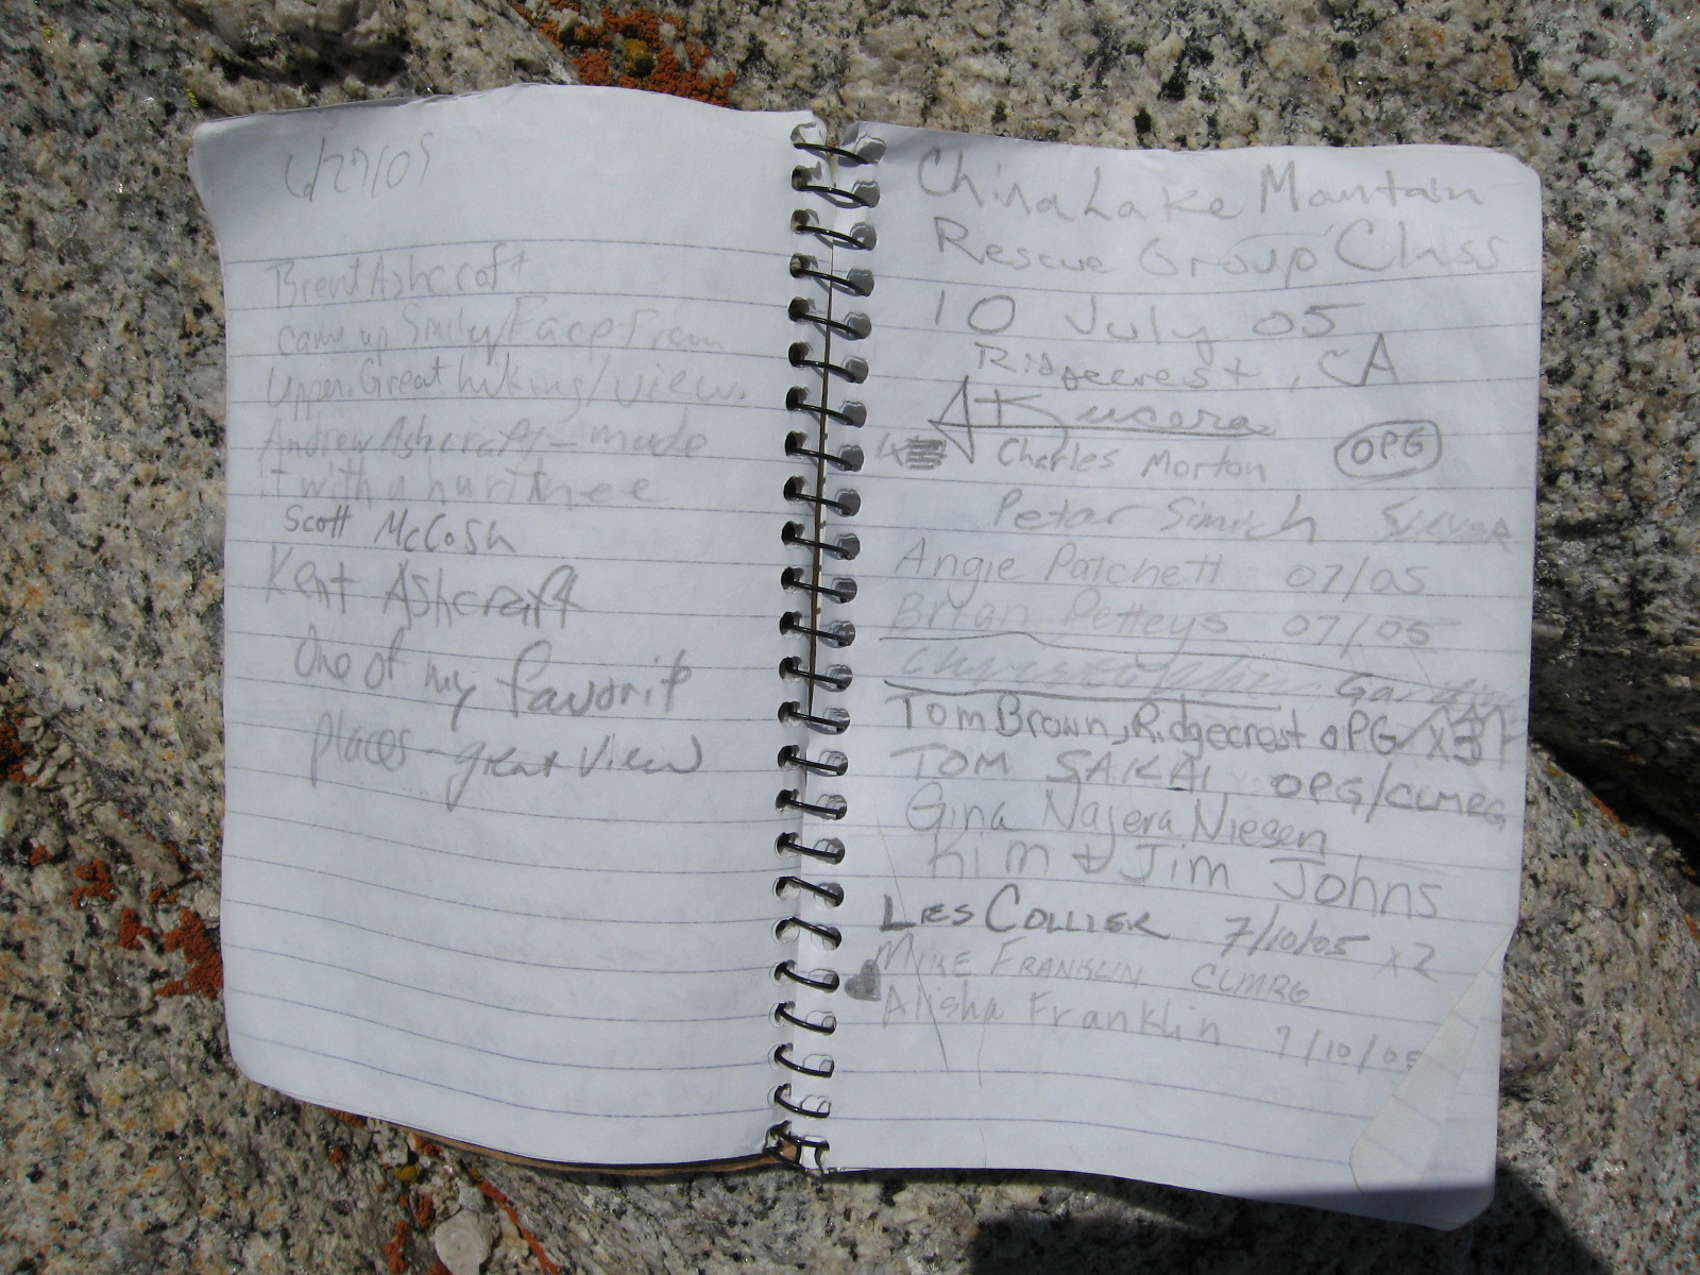 6/27/05
Brent Ashcroft
came up Smily Face From
Upper. Great hiking/view.
Andrew Ashcraft - made
it with a hurt knee
Scott McCosh
Kent Ashcraft
One of my favorit
places - great view
China Lake Mountain
Rescue Group Class
10 July 05
Ridgecrest, CA
Kucera
Charles Morton OPG
Petar Simich
Angie Patchett 07/05
Brian Petteys 07/05
Tom Brown, Ridgecrest OPG x3
TOM SAKAI OPG/CLMRG
Gina Najera Niesen
Kim & Jim Johns
LES COLLIER 7/10/05 x2
MIKE FRANKLIN CLMRG
Alisha Franklin 7/10/05